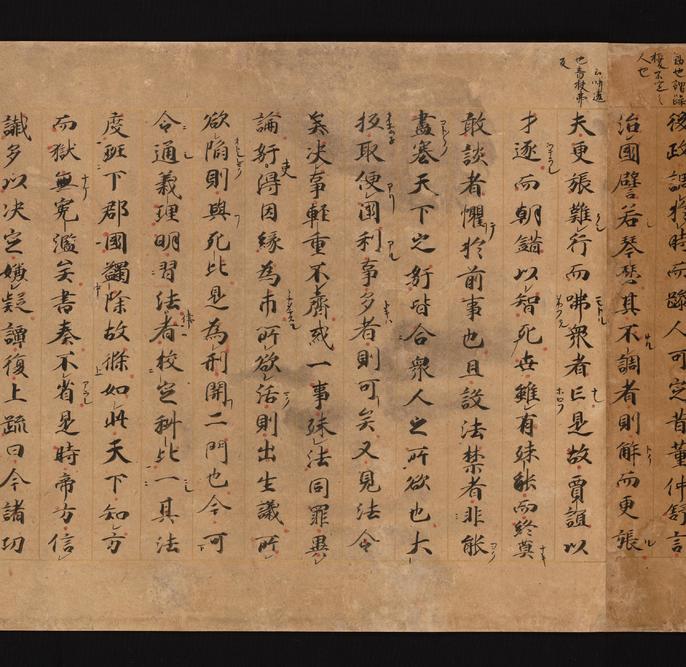 後政調於時而躁人可定昔董仲舒言
治國譬若琴瑟其不調者則解而更張
夫更張難行而咈衆者亡是故賈誼以
才逐而朝錯以智死世雖有殊能而終莫
敢談者懼於前事也且設法禁者非能
盡塞天下之姧皆合衆人之所欲也大
抵取便國利事多者則可矣又見法令
矣决事輕重不齊或一事殊法同罪異
論姧吏得因緣為市所欲活則出生議所
欲陷則與死比是為刑開二門也今可
令通義理明習法者校定科比一其法
度班下郡國蠲除故條如此天下知方
而獄無冤濫矣書奏不省是時帝方信
讖多以决定嫌疑譚復上疏曰今諸巧